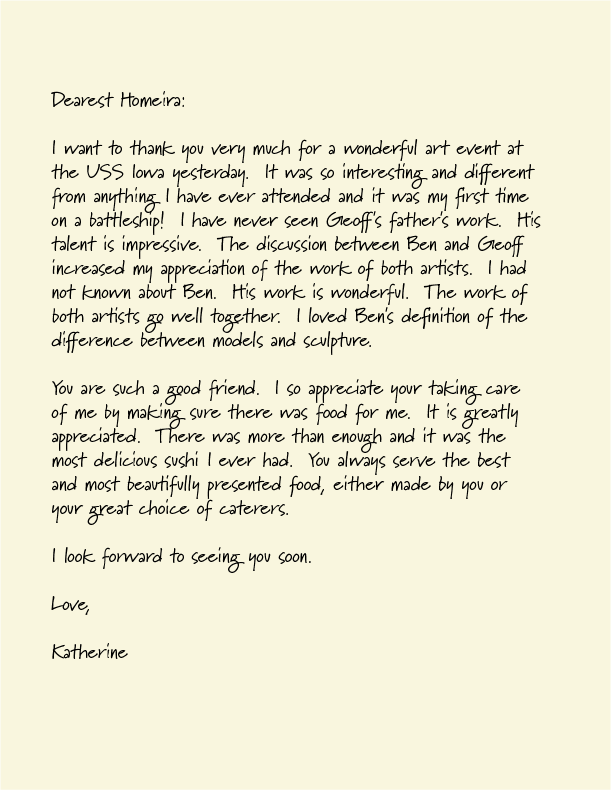 Dearest Homeira:
I want to thank you very much for a wonderful art event at
the USS Iowa yesterday. It was so interesting and different
from anything I have ever attended and it was my first time
on a battleship! I have never seen Geoff's father's work. His
talent is impressive. The discussion between Ben and Geoff
increased my appreciation of the work of both artists. I had
not known about Ben. His work is wonderful. The work of
both artists go well together. I loved Ben's definition of the
difference between models and sculpture.
You are such a good friend. I so appreciate your taking care
of me by making sure there was food for me. It is greatly
appreciated. There was more than enough and it was the
most delicious sushi I ever had. You always serve the best
and most beautifully presented food, either made by you or
your great choice of caterers.
I look forward to seeing you soon.
Love,
Katherine